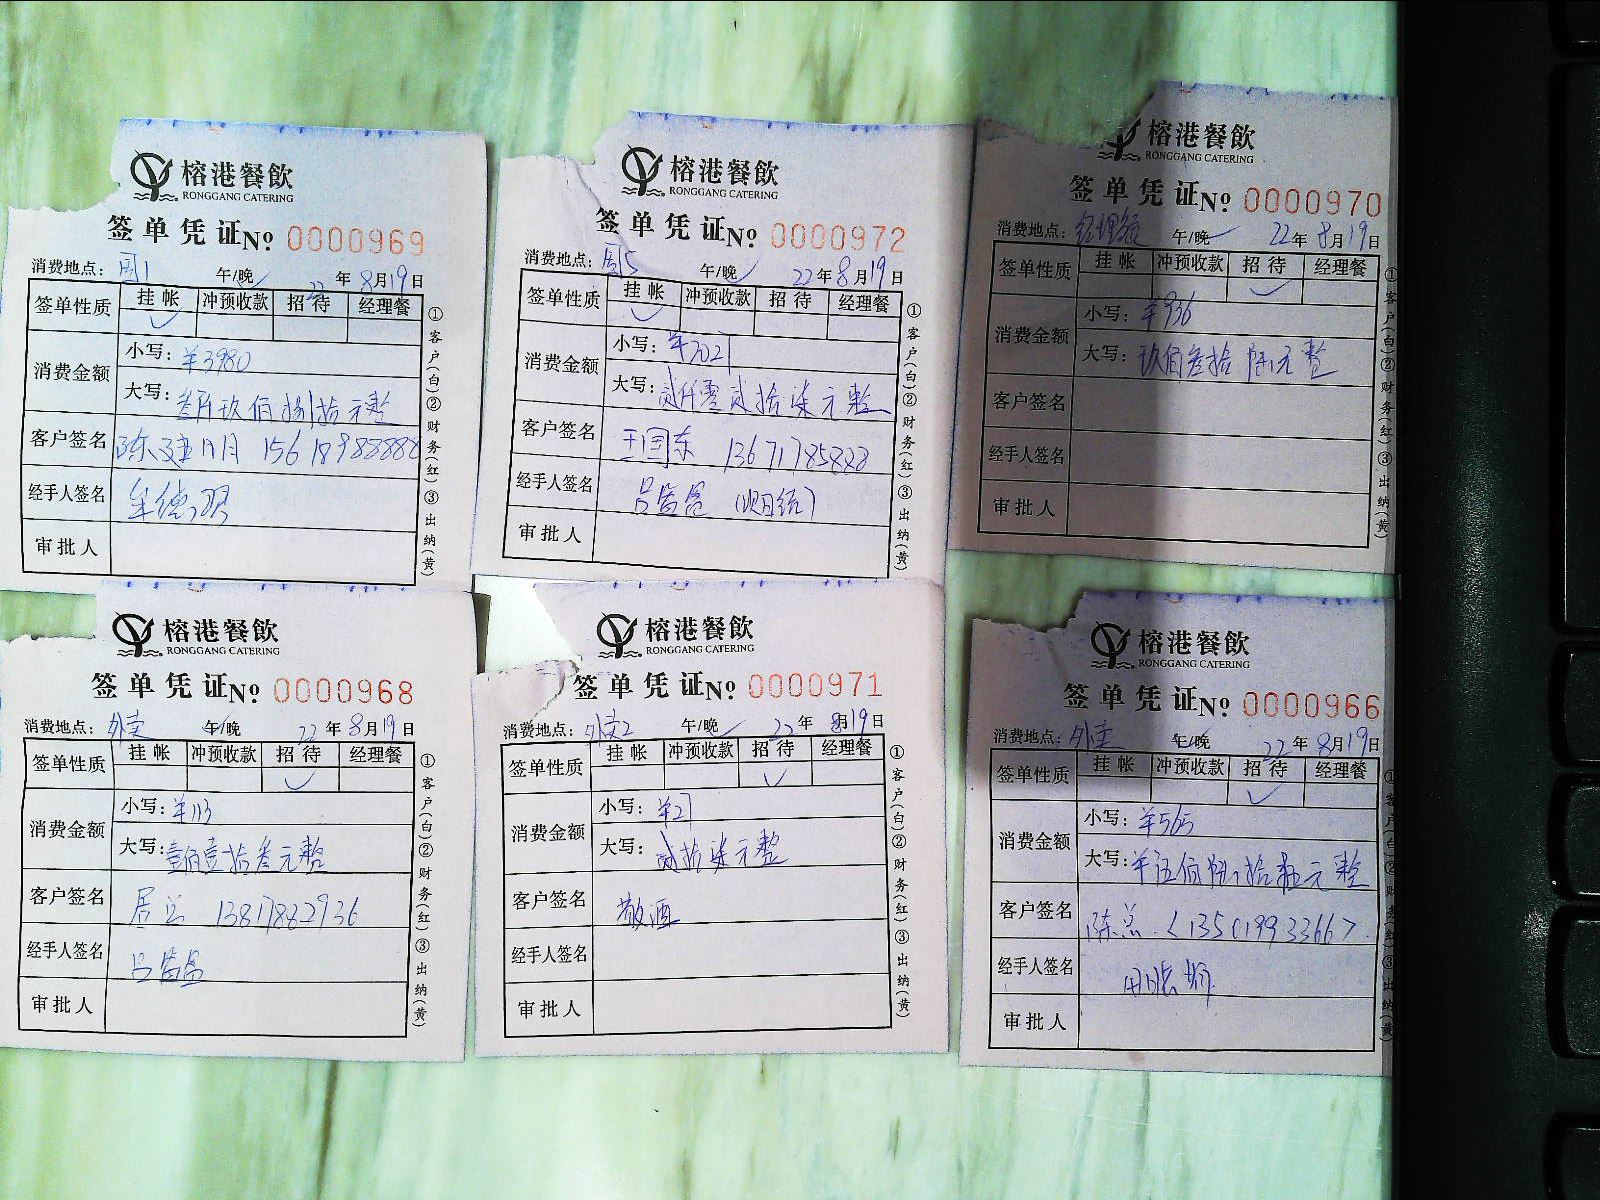 榕港餐飲
RONGGANG CATERING
签单凭证 No 0000969
消费地点：周1 午/晚 22年8月19日
签单性质 挂帐 冲预收款 招待 经理餐
消费金额 小写：¥3980
大写：叁仟玖佰捌拾元整
客户签名 陈建明 15618988888
经手人签名
审批人
①客户(白)②财务(红)③出纳(黄)
榕港餐飲
RONGGANG CATERING
签单凭证 No 0000972
消费地点：周5 午/晚 22年8月19日
签单性质 挂帐 冲预收款 招待 经理餐
消费金额 小写：¥2027
大写：贰仟零贰拾柒元整
客户签名 王国东 13671785888
经手人签名 (明日结)
审批人
①客户(白)②财务(红)③出纳(黄)
榕港餐飲
RONGGANG CATERING
签单凭证 No 0000970
消费地点：经理餐 午/晚 22年8月19日
签单性质 挂帐 冲预收款 招待 经理餐
消费金额 小写：¥936
大写：玖佰叁拾陆元整
客户签名
经手人签名
审批人
①客户(白)②财务(红)③出纳(黄)
榕港餐飲
RONGGANG CATERING
签单凭证 No 0000968
消费地点：外卖 午/晚 22年8月19日
签单性质 挂帐 冲预收款 招待 经理餐
消费金额 小写：¥113
大写：壹佰壹拾叁元整
客户签名 居总 13817832936
经手人签名
审批人
①客户(白)②财务(红)③出纳(黄)
榕港餐飲
RONGGANG CATERING
签单凭证 No 0000971
消费地点：外卖2 午/晚 22年8月19日
签单性质 挂帐 冲预收款 招待 经理餐
消费金额 小写：¥27
大写：贰拾柒元整
客户签名 敬酒
经手人签名
审批人
①客户(白)②财务(红)③出纳(黄)
榕港餐飲
RONGGANG CATERING
签单凭证 No 0000966
消费地点：外卖 午/晚 22年8月19日
签单性质 挂帐 冲预收款 招待 经理餐
消费金额 小写：¥565
大写：¥伍佰陆拾伍元整
客户签名 陈总 <13501993366>
经手人签名
审批人
①客户(白)②财务(红)③出纳(黄)